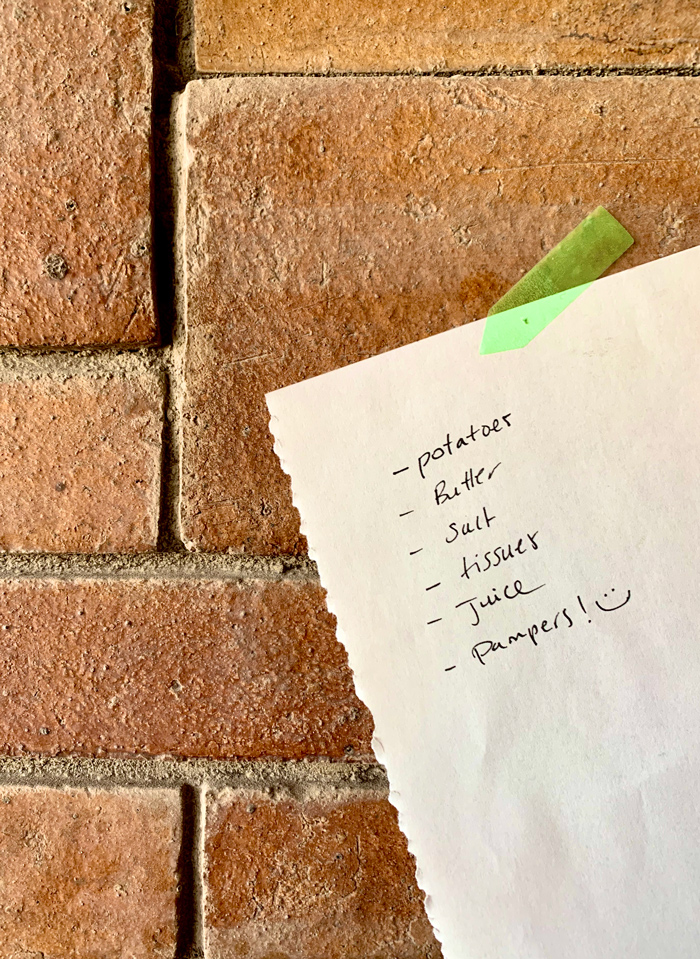 - potatoes
- Butter
- Salt
- tissues
- Juice
- Pampers! :)